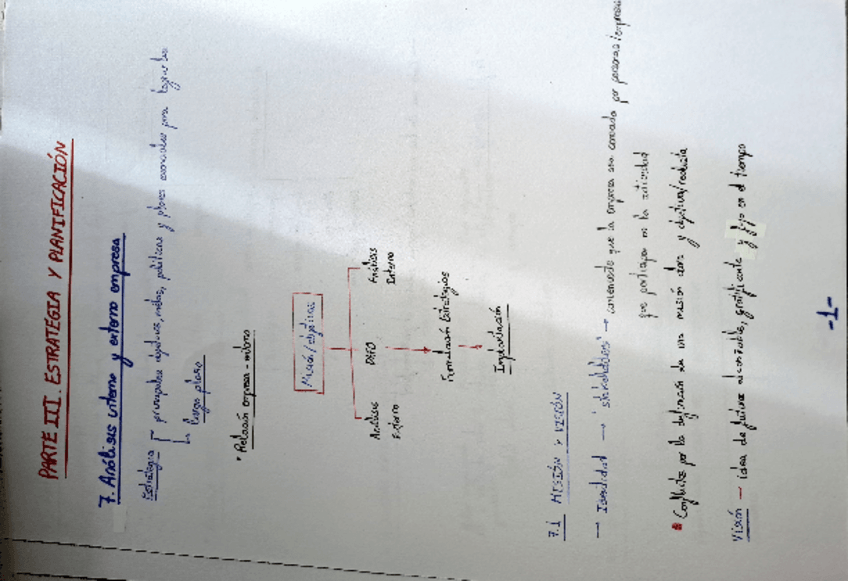 PARTE III. ESTRATEGIA Y PLANIFICACIÓN
7. Análisis interno y externo empresa
Estrategia principales objetivos, metas, políticas y planes esenciales para lograrlas
largo plazo
• Relación empresa-entorno
Misión/objetivos
Análisis Externo
DAFO
Análisis Interno
Formulación Estrategias
Implantación
7.1 MISIÓN Y VISIÓN
→ Identidad → 'stakeholders' → que la empresa sea por personas/empresas
que participan en la actividad
Conflictos por la definición de una misión clara y objetiva/realista
Visión → idea de futuro alcanzable, gratificante y fijo en el tiempo
-1-